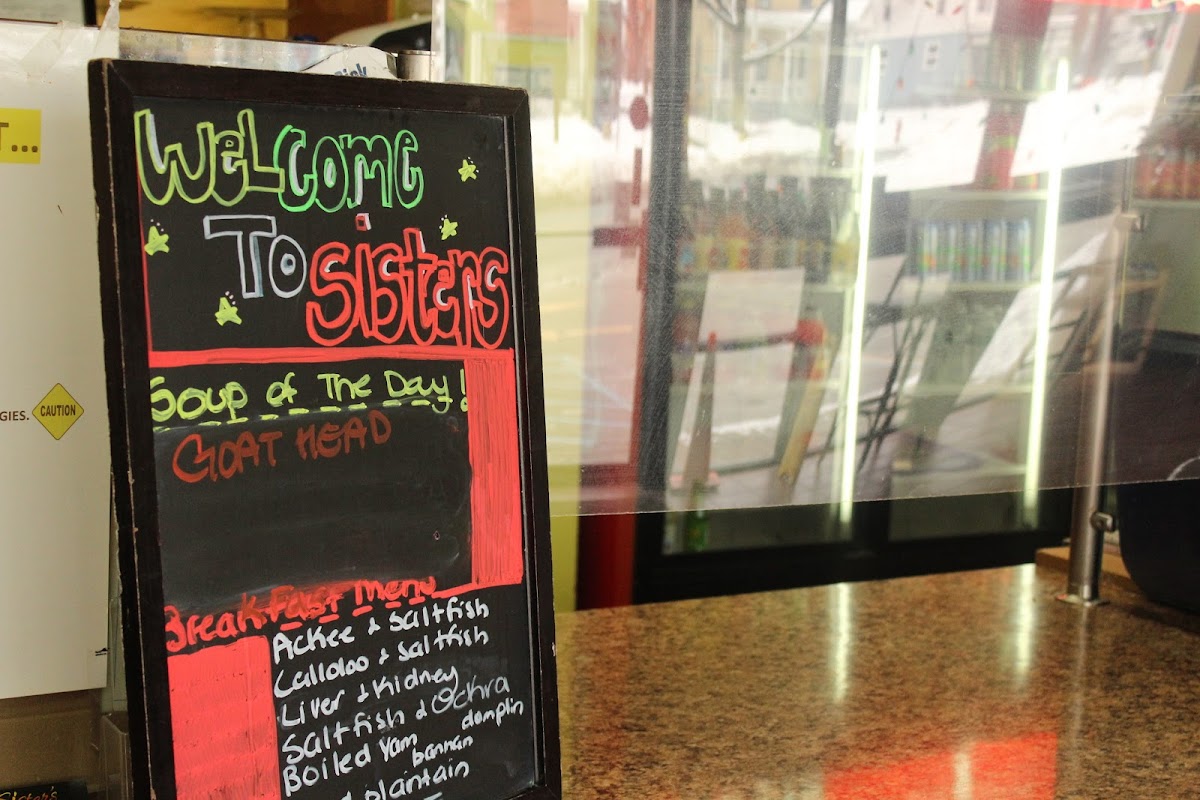 T...
GIES.
CAUTION
Welcome
To Sisters
Soup of The Day!
GOAT HEAD
Breakfast Menu
Ackee & Saltfish
Callaloo & Saltfish
Liver & Kidney
Saltfish & Ochra
Boiled Yam bannan domplin
plantain
Sister's